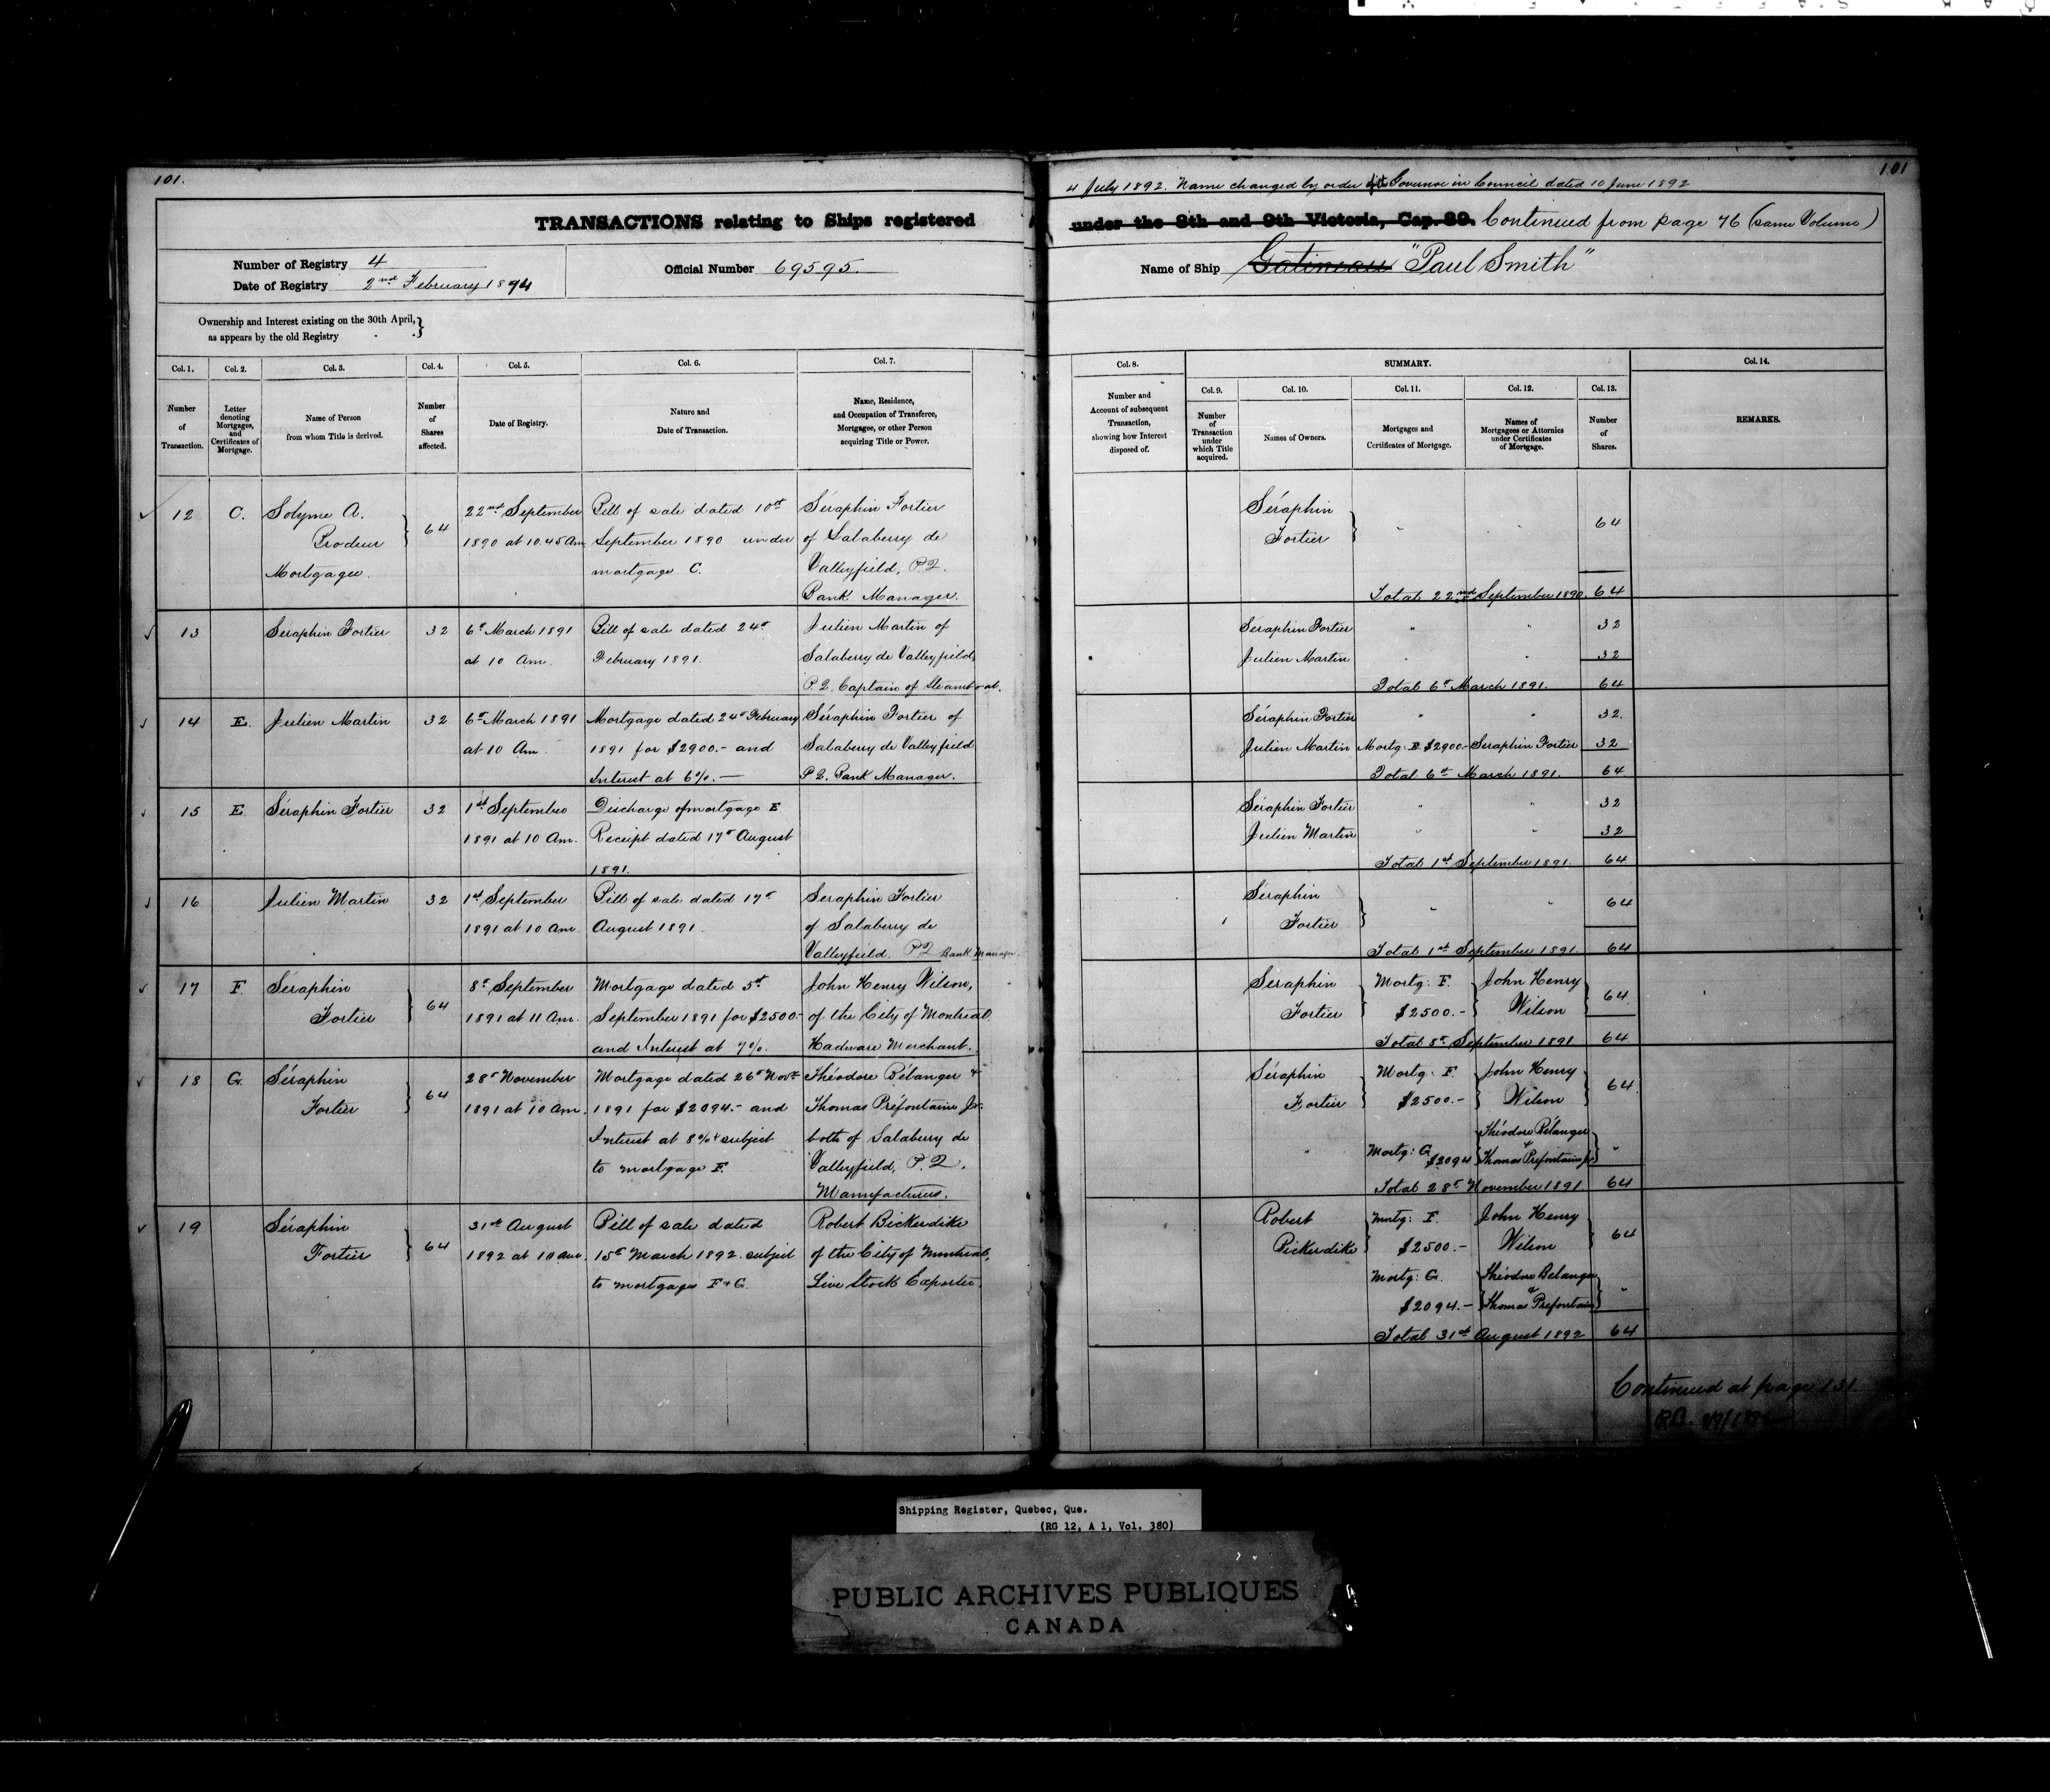 101.
TRANSACTIONS relating to Ships registered
Number of Registry 4
Date of Registry 2nd February 1874
Official Number 69595.
Ownership and Interest existing on the 30th April,
as appears by the old Registry
Col. 1. Col. 2. Col. 3. Col. 4. Col. 5. Col. 6. Col. 7.
Number of Transaction.
Letter denoting Mortgages, and Certificates of Mortgage.
Name of Person from whom Title is derived.
Number of Shares affected.
Date of Registry.
Nature and Date of Transaction.
Name, Residence, and Occupation of Transferee, Mortgagee, or other Person acquiring Title or Power.
12 C. Solyme A. Brodeur Mortgagee. } 64
22nd September 1890 at 10.45 Am
Bill of sale dated 10th September 1890 under mortgage C.
Séraphin Fortier of Salaberry de Valleyfield, P.Q. Bank Manager.
13 Seraphin Fortier 32
6t March 1891 at 10 Am.
Bill of sale dated 24t February 1891.
Julien Martin of Salaberry de Valleyfield, P.Q. Captain of Steamboat.
14 E. Julien Martin 32
6t March 1891 at 10 Am.
Mortgage dated 24t February 1891 for $2900.- and Interest at 6%.—
Séraphin Fortier of Salaberry de Valleyfield P.Q. Bank Manager.
15 E. Séraphin Fortier 32
1st September 1891 at 10 Am.
Discharge of mortgage E Receipt dated 17t August 1891.
16 Julien Martin 32
1st September 1891 at 10 Am.
Bill of sale dated 17t August 1891.
Seraphin Fortier of Salaberry de Valleyfield. P Q Bank Manager.
17 F. Séraphin Fortier } 64
8t September 1891 at 11 Am.
Mortgage dated 5th September 1891 for $2500.- and Interest at 7%.
John Henry Wilson, of the City of Montreal Hadware Merchant.
18 G. Séraphin Fortier } 64
28t November 1891 at 10 Am.
Mortgage dated 26t Novr 1891 for $2094.- and Interest at 8% & subject to mortgage F.
Théodore Bélanger & Thomas Préfontaine Jr. both of Salaberry de Valleyfield, P.Q. Manufacturers.
19 Séraphin Fortier } 64
31st August 1892 at 10 Am.
Bill of sale dated 15t March 1892. subject to mortgages F & G.
Robert Bickerdike of the City of Montreal, Live Stock Exporter.
101
4 July 1892. Name changed by order of the Governor in Council dated 10 June 1892
under the 8th and 9th Victoria, Cap. 89. Continued from page 76 (same Volume)
Name of Ship Gatineau "Paul Smith"
Col. 8. SUMMARY. Col. 14.
Col. 9. Col. 10. Col. 11. Col. 12. Col. 13.
Number and Account of subsequent Transaction, showing how Interest disposed of.
Number of Transaction under which Title acquired.
Names of Owners.
Mortgages and Certificates of Mortgage.
Names of Mortgagees or Attornies under Certificates of Mortgage.
Number of Shares.
REMARKS.
Séraphin Fortier } " " 64
Total 22nd September 1890. 64
Séraphin Fortier " " 32
Julien Martin " " 32
Total 6t March 1891. 64
Séraphin Fortier " " 32.
Julien Martin Mortg: E. $2900.- Seraphin Fortier 32
Total 6th March 1891. 64
Séraphin Fortier " " 32
Julien Martin " " 32
Total 1st September 1891. 64
Séraphin Fortier } " " 64
Total 1st September 1891. 64
Seraphin Fortier } Mortg: F. $2500.- } John Henry Wilson } 64
Total 8t September 1891. 64
Séraphin Fortier } Mortg: F. $2500.- } John Henry Wilson } 64
" Mortg: G. $2094 { Théodore Bélanger & Thomas Préfontaine Jr } "
Total 28t November 1891. 64
Robert Bickerdike } Mortg: F. $2500.- John Henry Wilson } 64
Mortg: G. $2094.- { Théodore Bélanger & Thomas Prefontaine } "
Total 31st August 1892 64
Continued at page 131
Shipping Register, Quebec, Que.
(RG 12, A 1, Vol. 380)
PUBLIC ARCHIVES PUBLIQUES
CANADA